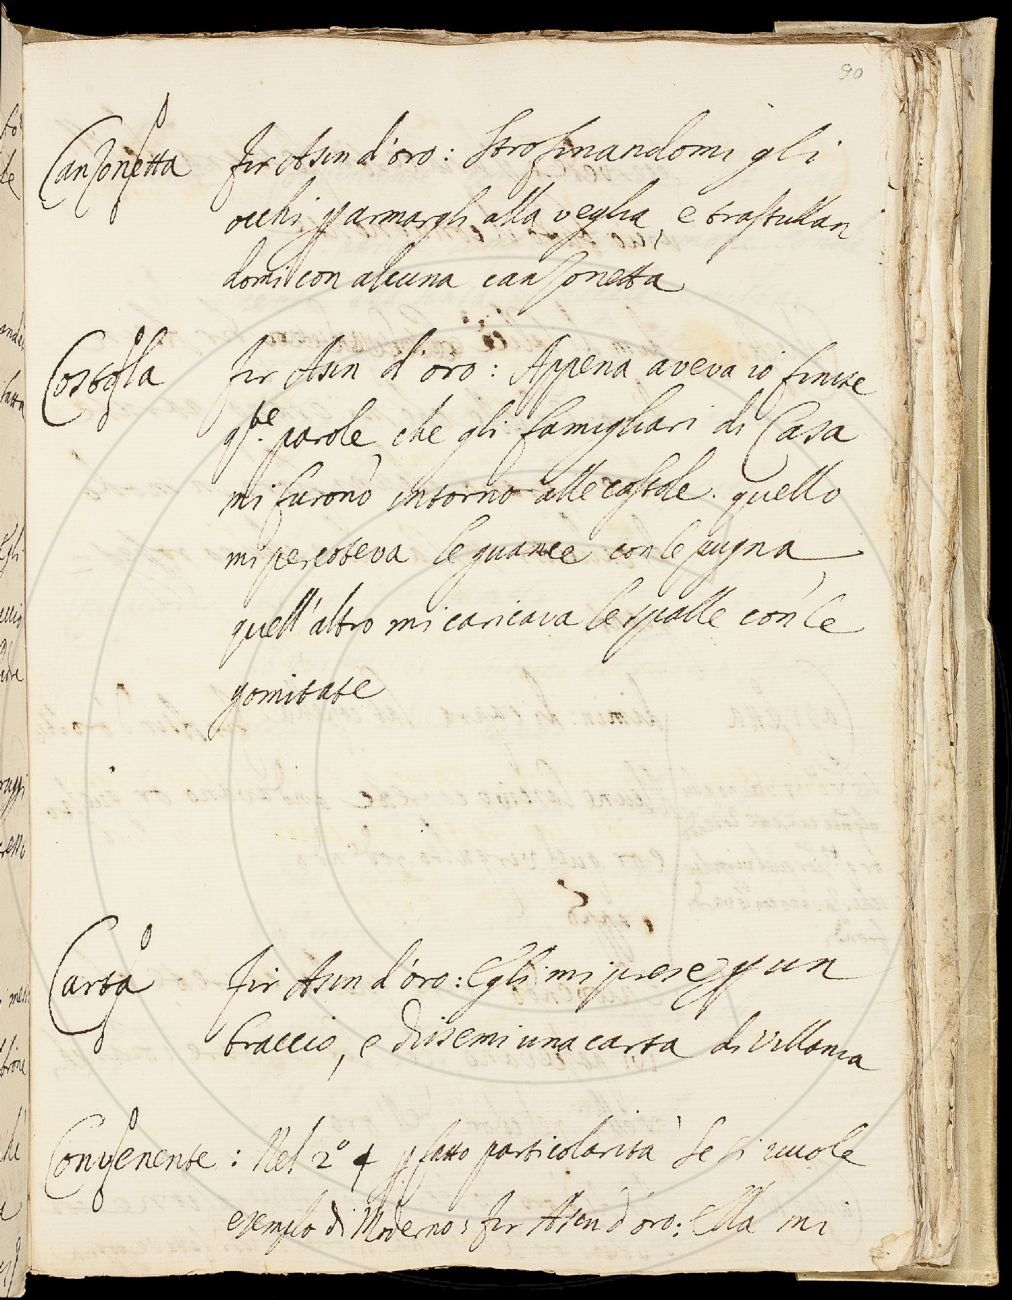 90
Canzonetta Fir Asin d'oro: Strofinandomi gli
occhi p armargli alla veglia, e trastullan
domi con alcuna canzonetta
Costola Fir Asin d'oro: Appena aveva io finite
qste parole, che gli famigliari di Casa
mi furono intorno alle costole. quello
mi percoteva le guance con le pugna,
quell'altro mi caricava le spalle con le
gomitate
Carta Fir Asin d'oro: Egli mi prese p un
braccio, e dissemi una carta di Villania
Convenente: Nel 2º p fatto particolarità Se si vuole
esemplo di Moderno: Fir Asin d'oro: Ella mi